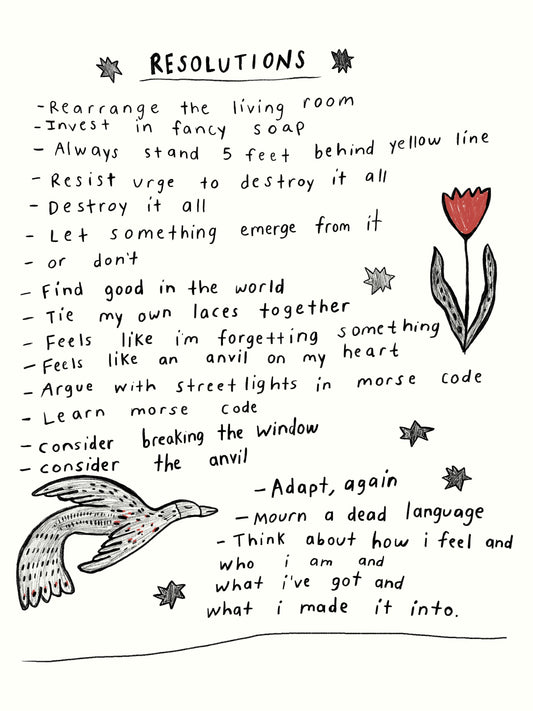 RESOLUTIONS
-Rearrange the living room
-Invest in fancy soap
- Always stand 5 feet behind yellow line
- Resist urge to destroy it all
- Destroy it all
- Let something emerge from it
- or don't
- Find good in the world
- Tie my own laces together
- Feels like i'm forgetting something
- Feels like an anvil on my heart
- Argue with streetlights in morse code
- Learn morse code
- consider breaking the window
- consider the anvil
- Adapt, again
- mourn a dead language
- Think about how i feel and
who i am and
what i've got and
what i made it into.